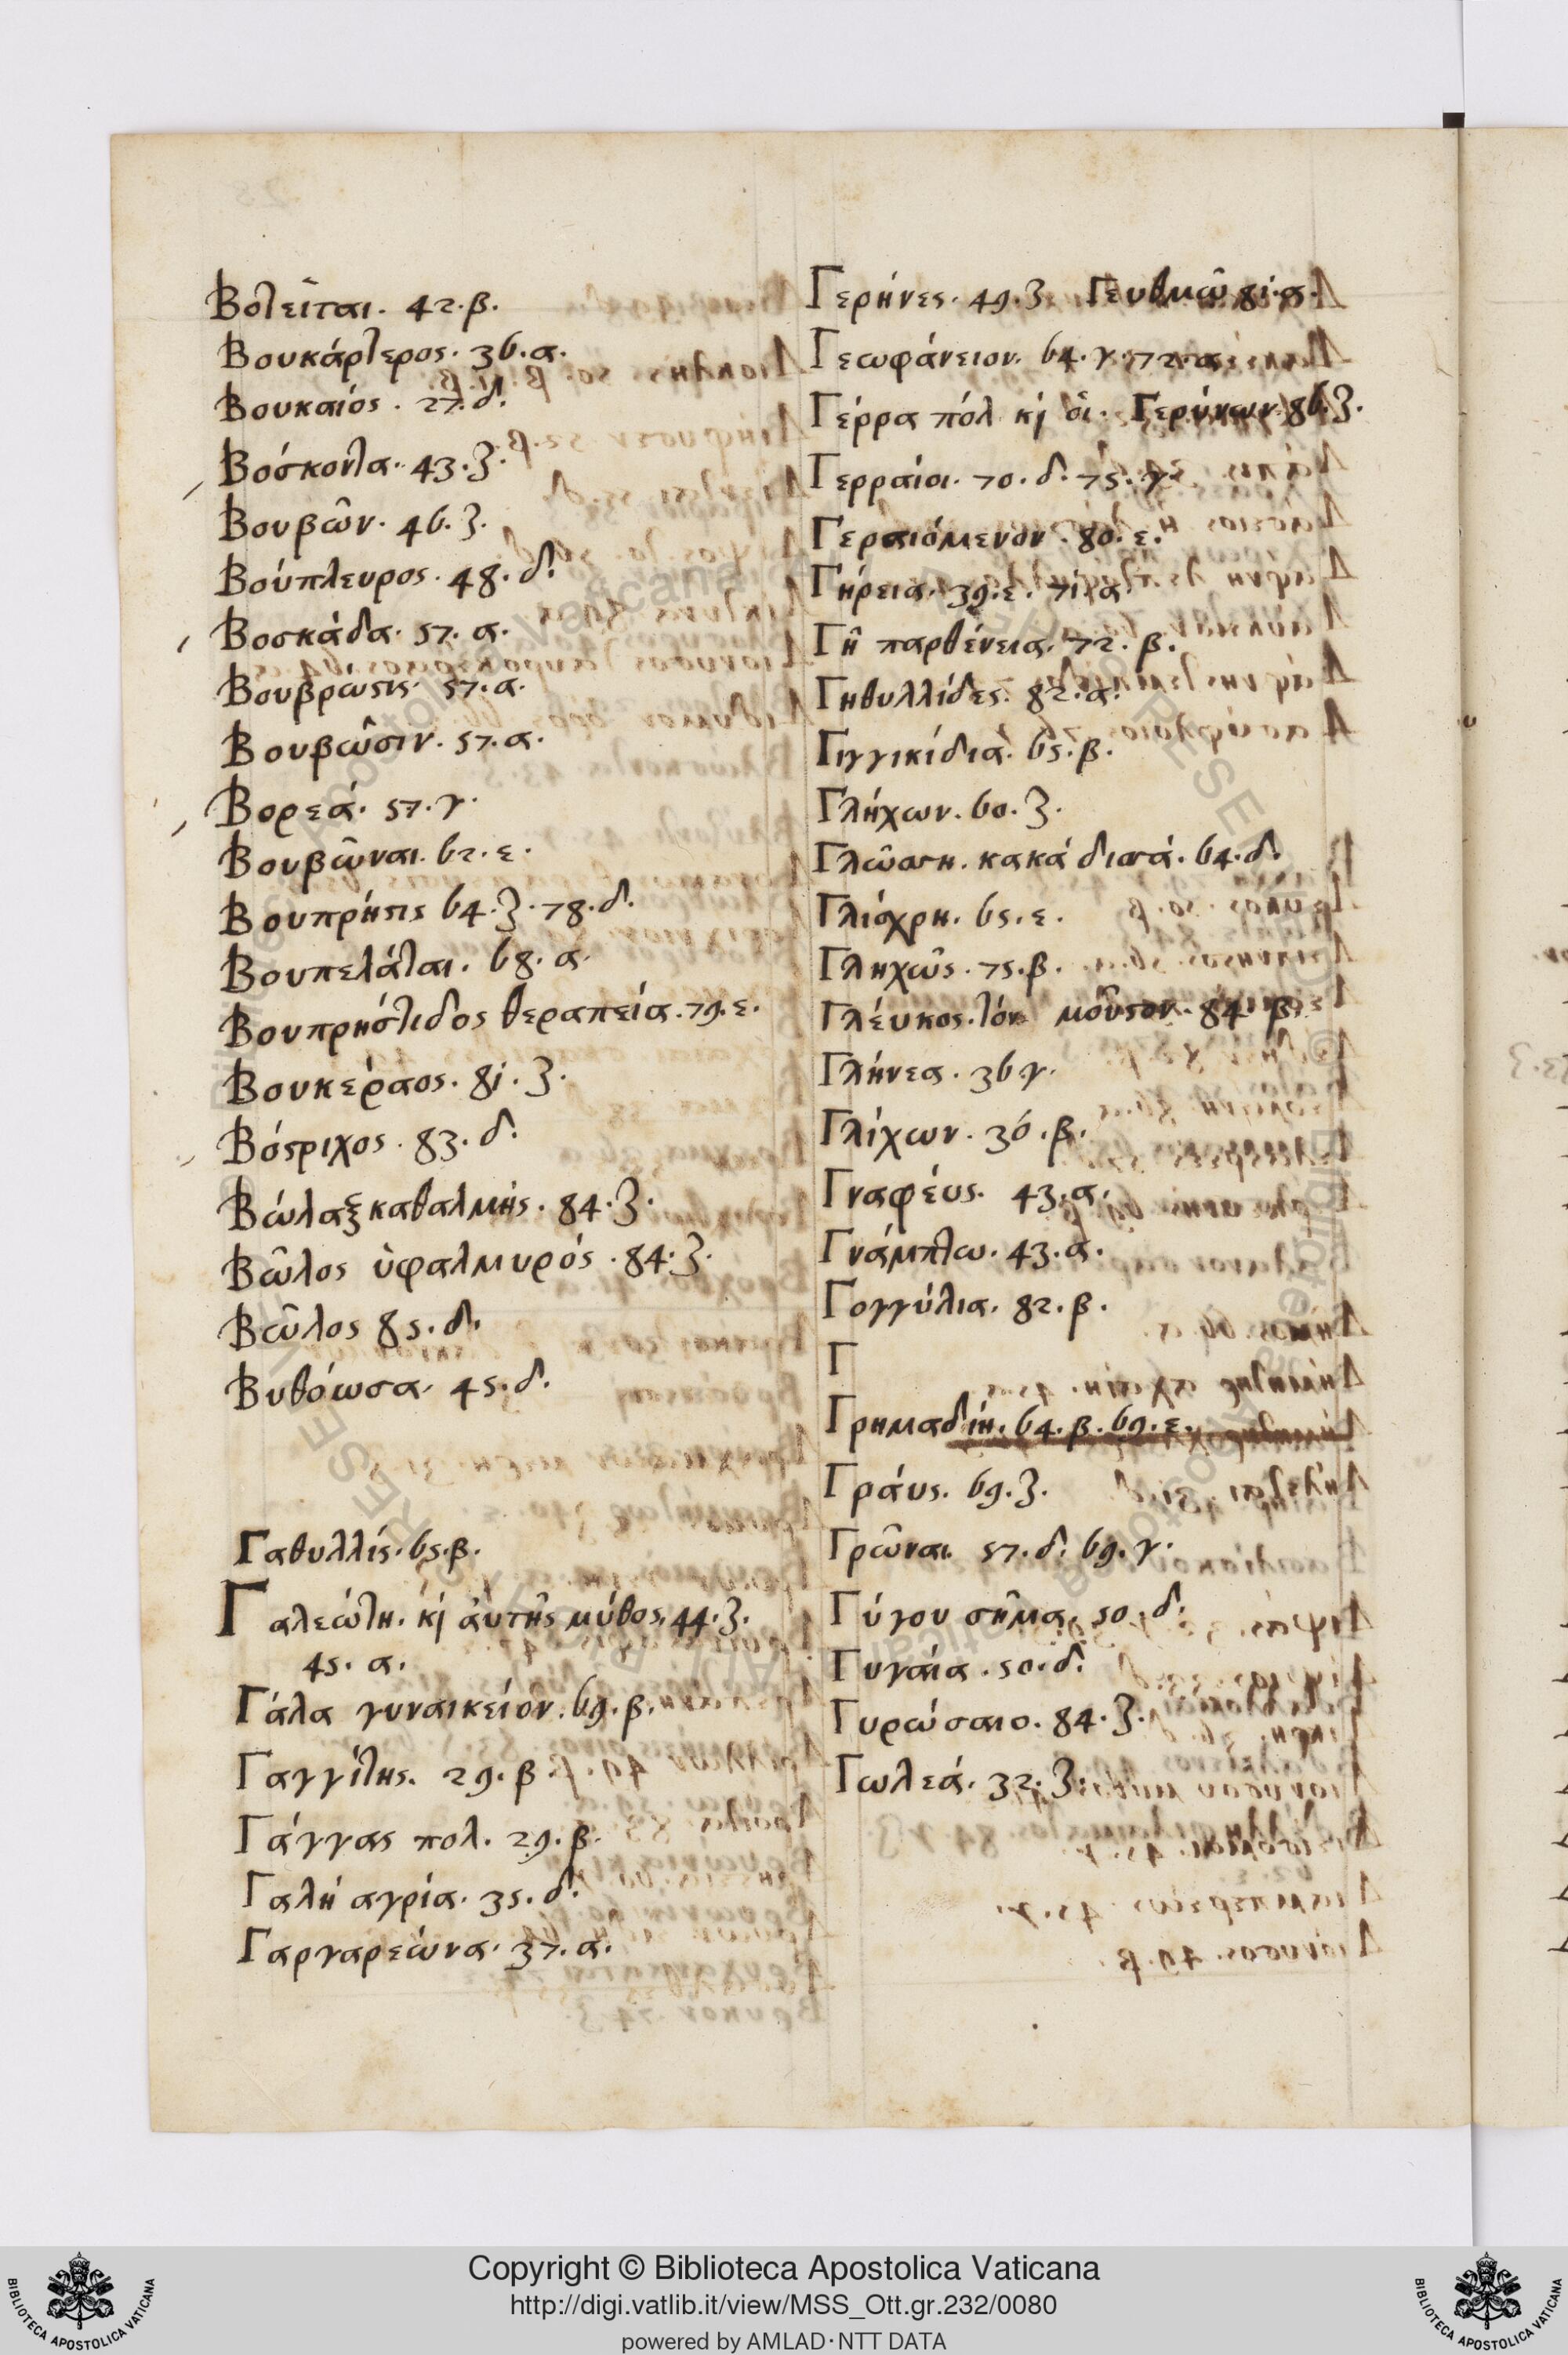 Βοτεῖται. 42. β.
Βουκάρτερος. 36. α.
Βουκαιός. 27. δ.
Βόσκοντα. 43. ζ.
Βουβῶν. 46. ζ.
Βούπλευρος. 48. δ.
Βοσκάδα. 57. α.
Βουβρώσις. 57. α.
Βουβῶσιν. 57. α.
Βορεά. 57. γ.
Βουβῶναι. 62. ε.
Βουπρήσις 64. ζ. 78. δ.
Βουπελάται. 68. α.
Βουπρήστιδος θεραπεία. 79. ε.
Βουκεράος. 81. ζ.
Βόςριχος. 83. δ.
Βώλαξ καθαλμής. 84. ζ.
Βῶλος ὑφαλμυρός. 84. ζ.
Βῶλος 85. δ.
Βυθόωσα. 45. δ.
Γαθυλλίς. 65. β.
Γαλεώτη. κ̀ αὐτῆς μύθος. 44. ζ.
45. α.
Γάλα γυναικείον. 69. β.
Γαγγίτης. 29. β.
Γάγγας πολ. 29. β.
Γαλή αγρία. 35. δ.
Γαργαρεώνα. 37. α.
Γερήνες. 49. ζ Γευθμῶ 81. α.
Γεωφάνειον. 64. γ. 72. α.
Γέρρα πόλ κ̀ οἱ. Γερύνων. 86. ζ.
Γερραίοι. 70. δ. 75. γ.
Γεραιόμενον. 80. ε.
Γήρεια. 39. ε. 71. α.
Γῆ παρθένεια. 72. β.
Γηθυλλίδες. 82. α.
Γιγγικίδια. 65. β.
Γλήχων. 60. ζ.
Γλῶσση. κακά διστά. 64. δ.
Γλίσχρη. 65. ε.
Γληχῶς. 75. β.
Γλέυκος. τόν μοῦστον. 84. β.
Γλήνεα. 36 γ.
Γλίχων. 36. β.
Γναφέυς. 43. α.
Γνάμπτω. 43. α.
Γογγύλια. 82. β.
Γ
Γρημαδίη. 64. β. 69. ε.
Γράυς. 69. ζ.
Γρῶναι. 57. δ. 69. γ.
Γύγου σῆμα. 50. δ.
Γυγάια. 50. δ.
Γυρώσαιο. 84. ζ.
Γωλεά. 32. ζ.
Copyright © Biblioteca Apostolica Vaticana
http://digi.vatlib.it/view/MSS_Ott.gr.232/0080
powered by AMLAD·NTT DATA
BIBLIOTECA APOSTOLICA VATICANA
BIBLIOTECA APOSTOLICA VATICANA